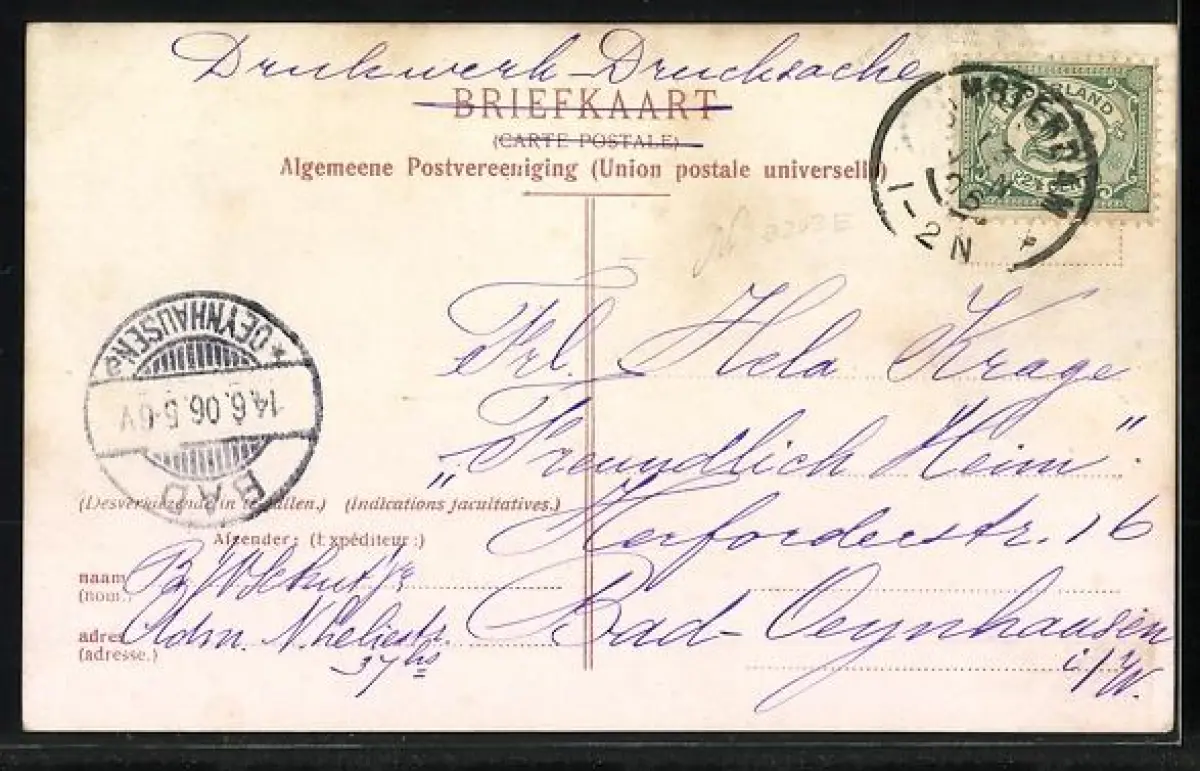 Drukwerk - Drucksache
BRIEFKAART
(CARTE POSTALE)
Algemeene Postvereeniging (Union postale universelle)
AMSTERDAM
1-2N
NEDERLAND
2½
Frl. Hela Krage
„Freundlich Heim"
Herforderstr. 16
Bad-Oeynhausen
i/W.
BAD OEYNHAUSEN
14.6.06.5-6V
(Desverlangende in te vullen.) (Indications facultatives.)
Afzender: (Expéditeur:)
naam
(nom.)
adres
(adresse.)
37hs